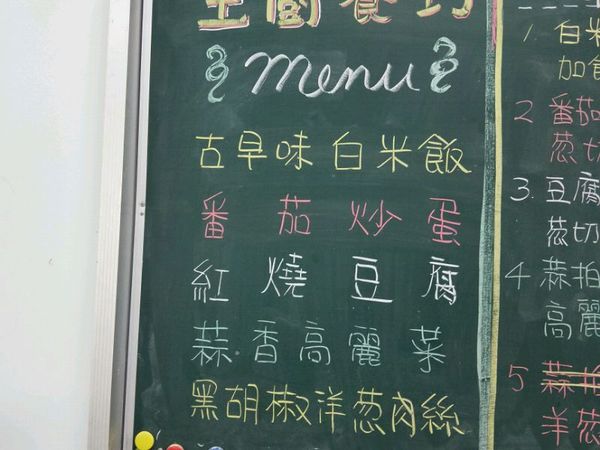 主廚餐巧
menu
古早味白米飯
番茄炒蛋
紅燒豆腐
蒜香高麗菜
黑胡椒洋葱肉絲
1. 白米
加食
2 番茄
葱切
3. 豆腐
葱切
4 蒜拍
高麗
5 蒜拍
羊葱